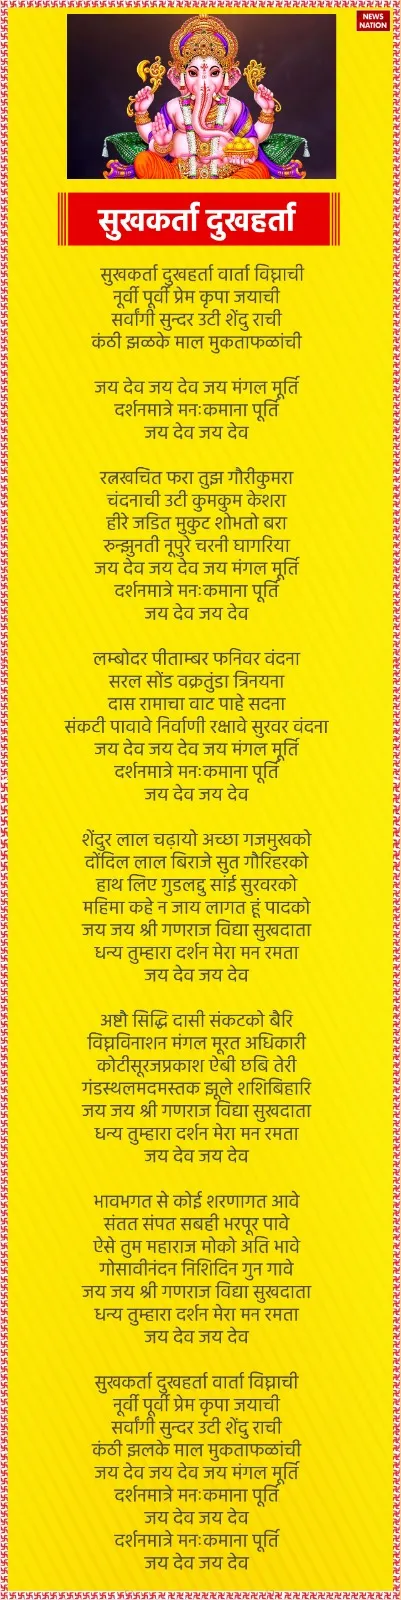 NEWS
NATION
सुखकर्ता दुखहर्ता
सुखकर्ता दुखहर्ता वार्ता विघ्नाची
नूर्वी पूर्वी प्रेम कृपा जयाची
सर्वांगी सुन्दर उटी शेंदु राची
कंठी झळके माल मुकताफळांची
जय देव जय देव जय मंगल मूर्ति
दर्शनमात्रे मनःकमाना पूर्ति
जय देव जय देव
रत्नखचित फरा तुझ गौरीकुमरा
चंदनाची उटी कुमकुम केशरा
हीरे जडित मुकुट शोभतो बरा
रुन्झुनती नूपुरे चरनी घागरिया
जय देव जय देव जय मंगल मूर्ति
दर्शनमात्रे मनःकमाना पूर्ति
जय देव जय देव
लम्बोदर पीताम्बर फनिवर वंदना
सरल सोंड वक्रतुंडा त्रिनयना
दास रामाचा वाट पाहे सदना
संकटी पावावे निर्वाणी रक्षावे सुरवर वंदना
जय देव जय देव जय मंगल मूर्ति
दर्शनमात्रे मनःकमाना पूर्ति
जय देव जय देव
शेंदुर लाल चढ़ायो अच्छा गजमुखको
दोंदिल लाल बिराजे सुत गौरिहरको
हाथ लिए गुडलद्दु सांई सुरवरको
महिमा कहे न जाय लागत हूं पादको
जय जय श्री गणराज विद्या सुखदाता
धन्य तुम्हारा दर्शन मेरा मन रमता
जय देव जय देव
अष्टौ सिद्धि दासी संकटको बैरि
विघ्नविनाशन मंगल मूरत अधिकारी
कोटीसूरजप्रकाश ऐबी छबि तेरी
गंडस्थलमदमस्तक झूले शशिबिहारि
जय जय श्री गणराज विद्या सुखदाता
धन्य तुम्हारा दर्शन मेरा मन रमता
जय देव जय देव
भावभगत से कोई शरणागत आवे
संतत संपत सबही भरपूर पावे
ऐसे तुम महाराज मोको अति भावे
गोसावीनंदन निशिदिन गुन गावे
जय जय श्री गणराज विद्या सुखदाता
धन्य तुम्हारा दर्शन मेरा मन रमता
जय देव जय देव
सुखकर्ता दुखहर्ता वार्ता विघ्नाची
नूर्वी पूर्वी प्रेम कृपा जयाची
सर्वांगी सुन्दर उटी शेंदु राची
कंठी झलके माल मुकताफळांची
जय देव जय देव जय मंगल मूर्ति
दर्शनमात्रे मनःकमाना पूर्ति
जय देव जय देव
दर्शनमात्रे मनःकमाना पूर्ति
जय देव जय देव